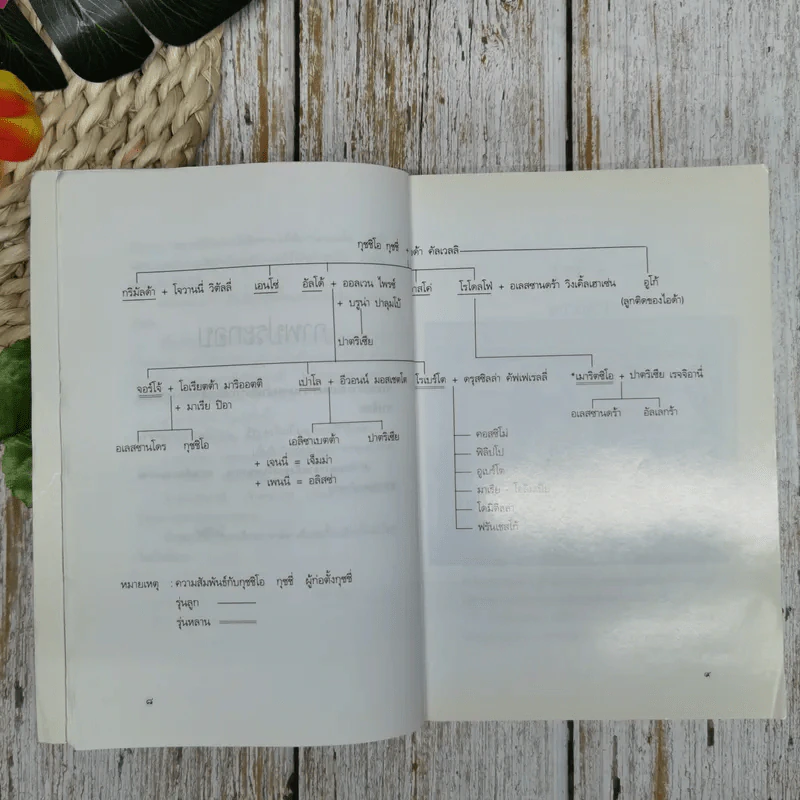 กุชชิโอ กุชชี่ + ไอด้า คัลเวลลี
กริมัลด้า + โจวานนี่ วิตัลลี่ เอนโซ่ อัลโด้ + ออลเวน ไพรซ์ วาสโก่ โรโดลโฟ + อเลสซานดร้า วิงเคิ้ลเฮาเซ่น อูโก้
+ บรูน่า ปาลุมโบ้ (ลูกติดของไอด้า)
ปาตริเซีย
จอร์โจ้ + โอเรียตต้า มาริออตติ เปาโล + อีวอนน์ มอสเชตโต โรเบร์โต + ดรุสซิลล่า คัฟเฟเรลลี่ *เมาริตซิโอ + ปาตริเซีย เรจจิอานี่
+ มาเรีย ปิอา
อเลสซานดร้า อัลเลกร้า
อเลสซานโดร กุชชิโอ เอลิซาเบตต้า ปาตริเซีย คอสซิโม่
+ เจนนี่ = เจ็มม่า ฟิลิปโป
+ เพนนี่ = อลิสซ่า อูเบร์โต
มาเรีย -
โดมิติลล่า
ฟรันเชสโก้
หมายเหตุ : ความสัมพันธ์กับกุชชิโอ กุชชี่ ผู้ก่อตั้งกุชชี่
รุ่นลูก
รุ่นหลาน
๘
๙